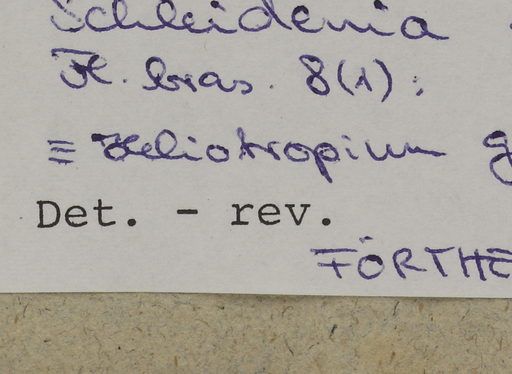 Schleidenia
Fl. bras. 8(1):
≡ Heliotropium g
Det. - rev.
FÖRTHE